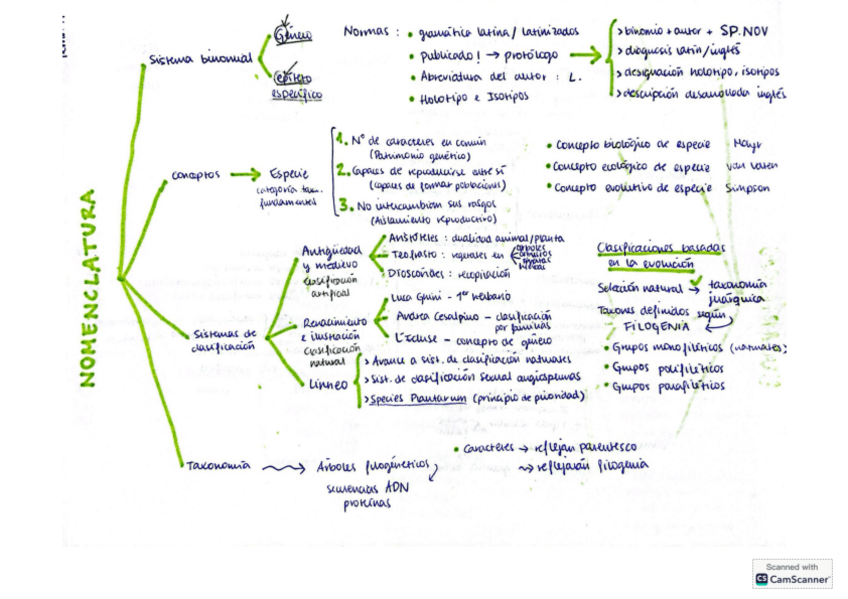 NOMENCLATURA
Sistema binomial
Género
epíteto
específico
Normas :
• gramática latina / latinizados
• Publicado! → protólogo
• Abreviatura del autor : L.
• Holotipo e Isotipos
> binomio + autor + SP. NOV
> diagnosis latín/inglés
> designación holotipo, isotipos
> descripción desarrollada inglés
conceptos → Especie
categoría tax.
fundamental
1. Nº de caracteres en común
(Patrimonio genético)
2. Capaces de reproducirse entre sí
(capaces de formar poblaciones)
3. No intercambian sus rasgos
(Aislamiento reproductivo)
• Concepto biológico de especie Mayr
• Concepto ecológico de especie Van Valen
• Concepto evolutivo de especie Simpson
Sistemas de
clasificación
Antigüedad
y medievo
clasificación
artificial
Aristóteles : dualidad animal/planta
Teofrasto : vegetales en
árboles
arbustos
hierbas
Dioscórides : recopilación
Renacimiento
e ilustración
clasificación
natural
Luca Ghini - 1er herbario
Andrea Cesalpino - clasificación
por familias
L'Ecluse - concepto de género
Linneo
> Avance a sist. de clasificación naturales
> Sist. de clasificación sexual angiospermas
> Species Plantarum (principio de prioridad)
Clasificaciones basadas
en la evolución
Selección natural → taxonomía
jerárquica
Taxones definidos según
FILOGENIA
• Grupos monofiléticos (naturales)
• Grupos polifiléticos
• Grupos parafiléticos
Taxonomía → Árboles filogenéticos
secuencias ADN
proteínas
• Caracteres → reflejan parentesco
→ reflejarán filogenia
Scanned with
CS CamScanner